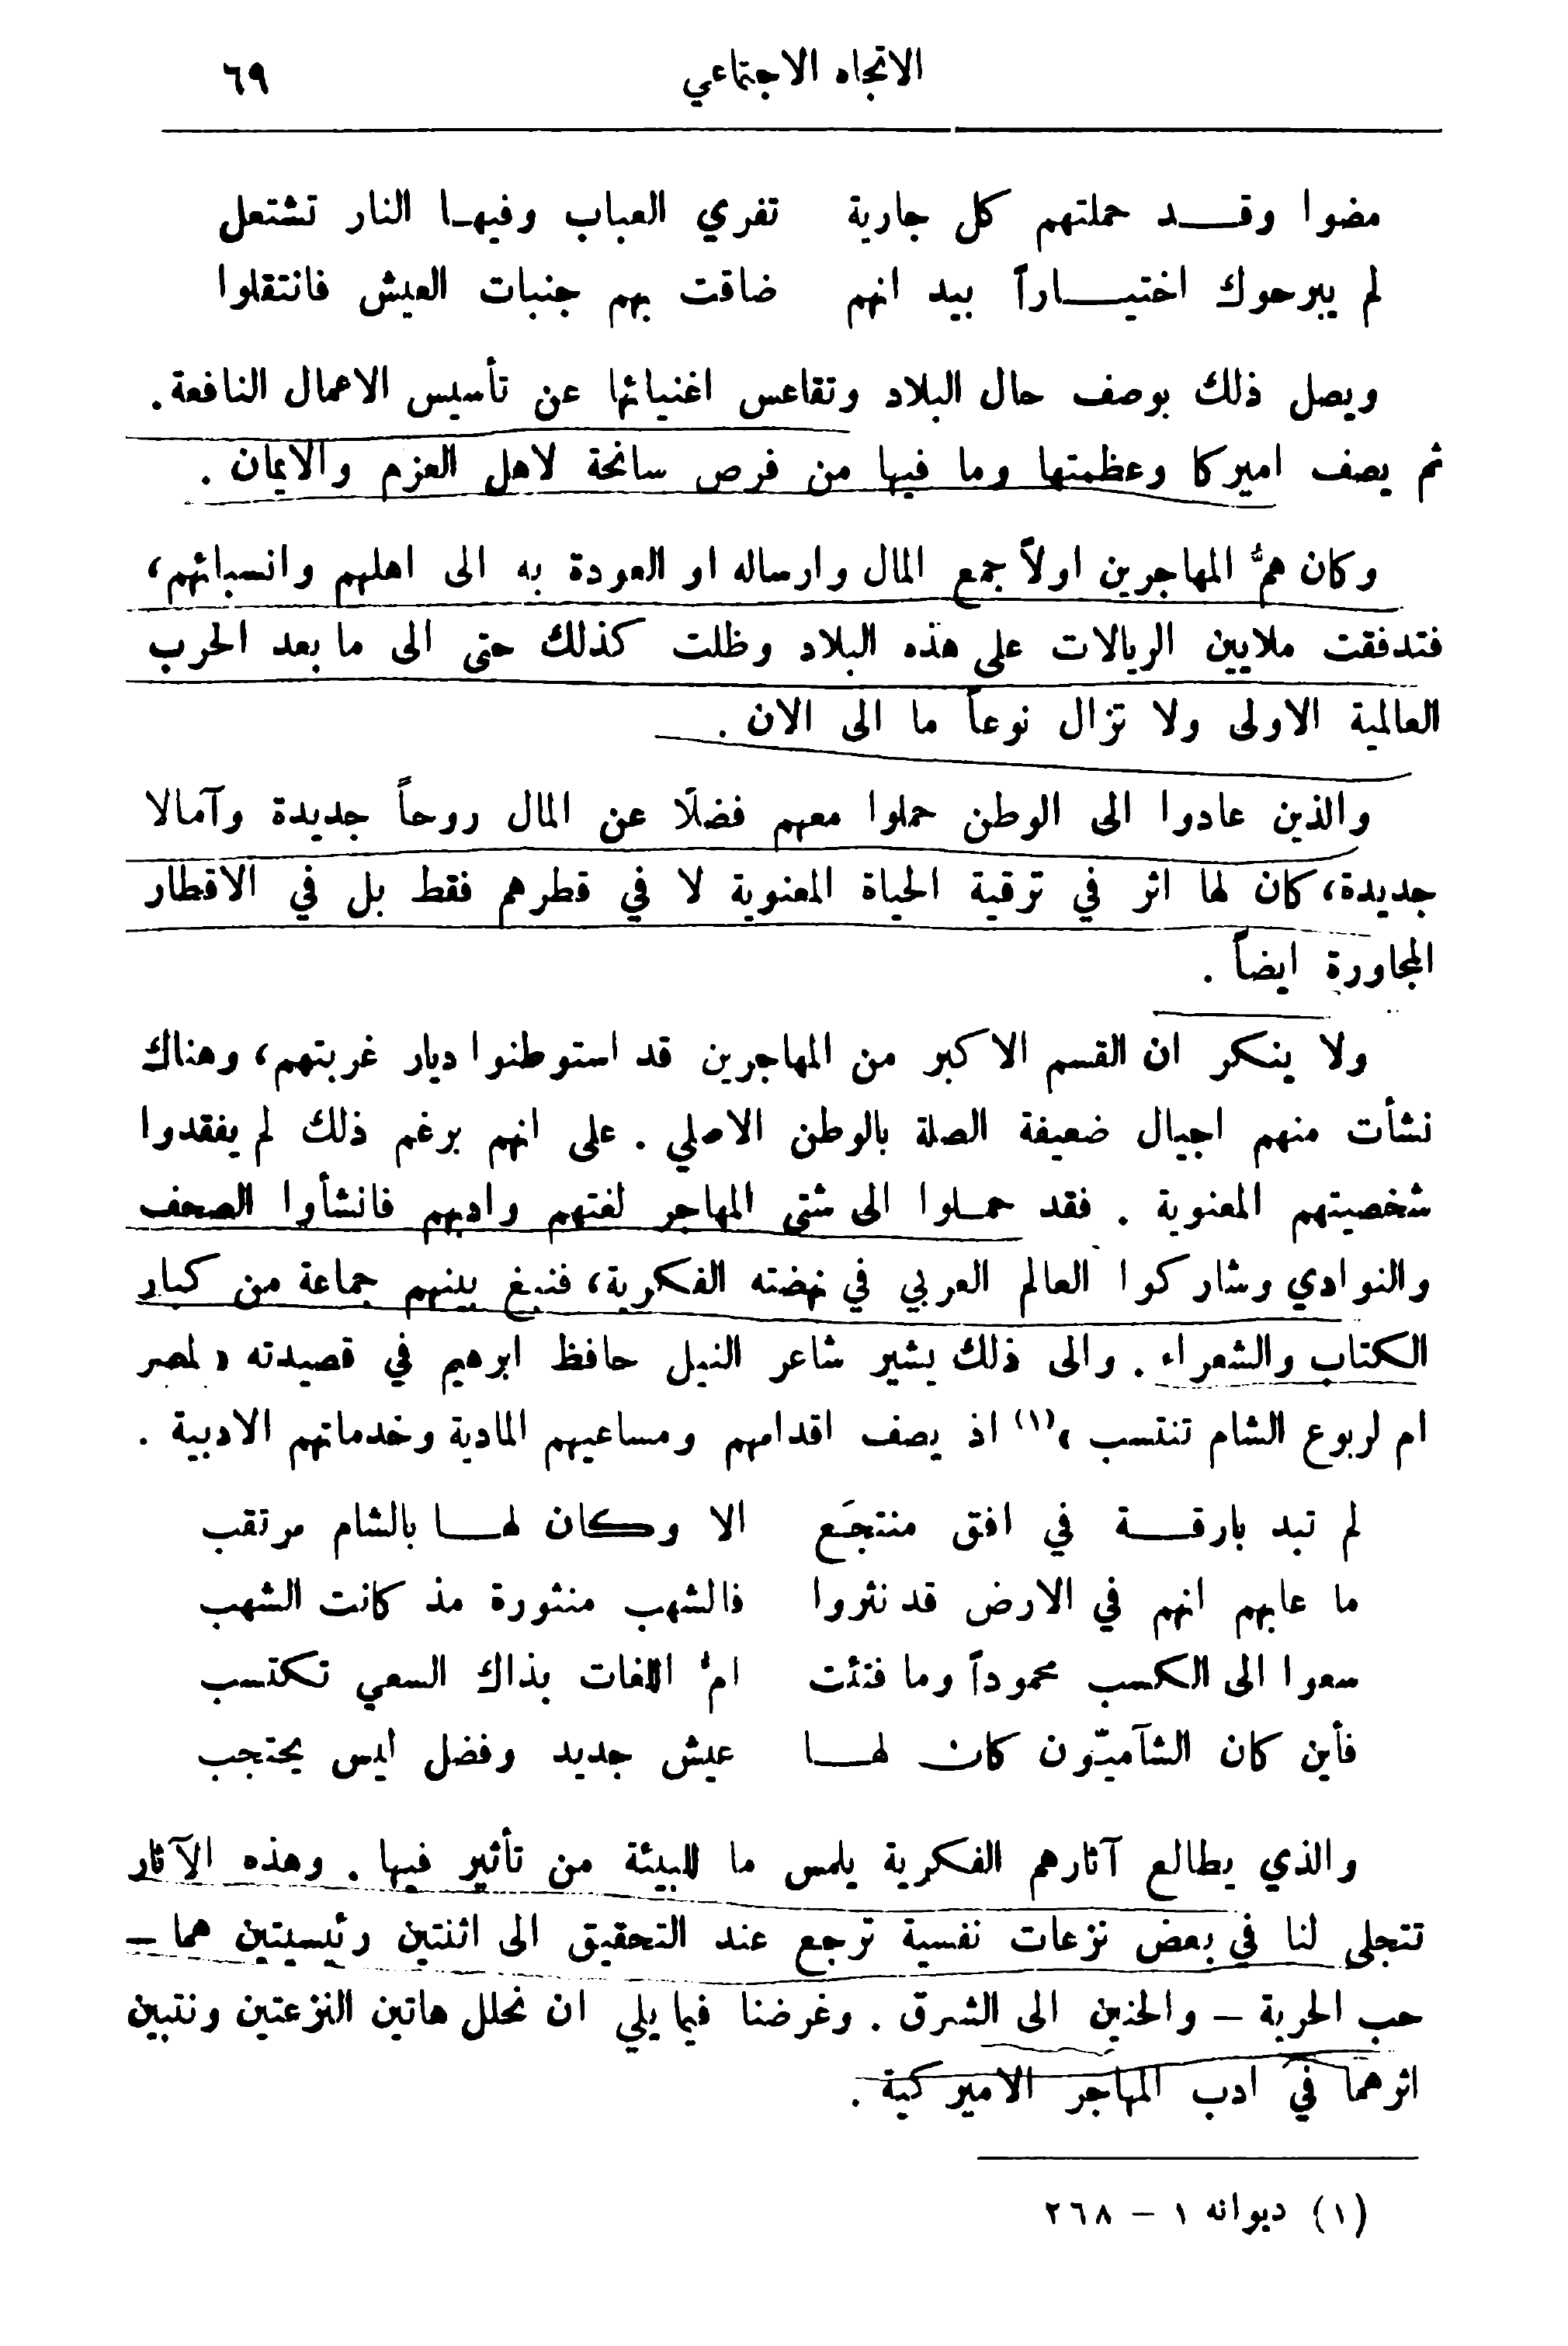 الاتجاه الاجتماعي ٦٩
مضوا وقد حملتهم كل جارية تفري العباب وفيها النار تشتعل
لم يبرحوك اختياراً بيد انهم ضاقت بهم جنبات العيش فانتقلوا
ويصل ذلك بوصف حال البلاد وتقاعس اغنيائها عن تأسيس الاعمال النافعة .
ثم يصف اميركا وعظمتها وما فيها من فرص سانحة لاهل العزم والايمان .
وكان همُّ المهاجرين اولاً جمع المال وارساله او العودة به الى اهلهم وانسبائهم،
فتدفقت ملايين الريالات على هذه البلاد وظلت كذلك حتى الى ما بعد الحرب
العالمية الاولى ولا تزال نوعاً ما الى الان .
والذين عادوا الى الوطن حملوا معهم فضلًا عن المال روحاً جديدة وآمالا
جديدة، كان لها اثر في ترقية الحياة المعنوية لا في قطرهم فقط بل في الاقطار
المجاورة ايضاً .
ولا ينكر ان القسم الاكبر من المهاجرين قد استوطنوا ديار غربتهم، وهناك
نشأت منهم اجيال ضعيفة الصلة بالوطن الاصلي . على انهم برغم ذلك لم يفقدوا
شخصيتهم المعنوية . فقد حملوا الى شتى المهاجر لغتهم وادبهم فانشأوا الصحف
والنوادي وشاركوا العالم العربي في نهضته الفكرية، فنبغ بينهم جماعة من كبار
الكتاب والشعراء . والى ذلك يشير شاعر النيل حافظ ابرهيم في قصيدته « لمصر
ام لربوع الشام تنتسب »(١) اذ يصف اقدامهم ومساعيهم المادية وخدماتهم الادبية .
لم تبد بارقة في افق منتجَع الا وكان لها بالشام مرتقب
ما عابهم انهم في الارض قد نثروا فالشهب منثورة مذ كانت الشهب
سعوا الى الكسب محموداً وما فتئت امُّ اللغات بذاك السعي تكتسب
فأين كان الشآميّون كان لها عيش جديد وفضل ليس يحتجب
والذي يطالع آثارهم الفكرية يلمس ما للبيئة من تأثير فيها . وهذه الآثار
تتجلى لنا في بعض نزعات نفسية ترجع عند التحقيق الى اثنتين رئيسيتين هما –
حب الحرية – والحنين الى الشرق . وغرضنا فيما يلي ان نحلل هاتين النزعتين ونتبين
اثرهما في ادب المهاجر الاميركية .
(١) ديوانه ١ – ٢٦٨